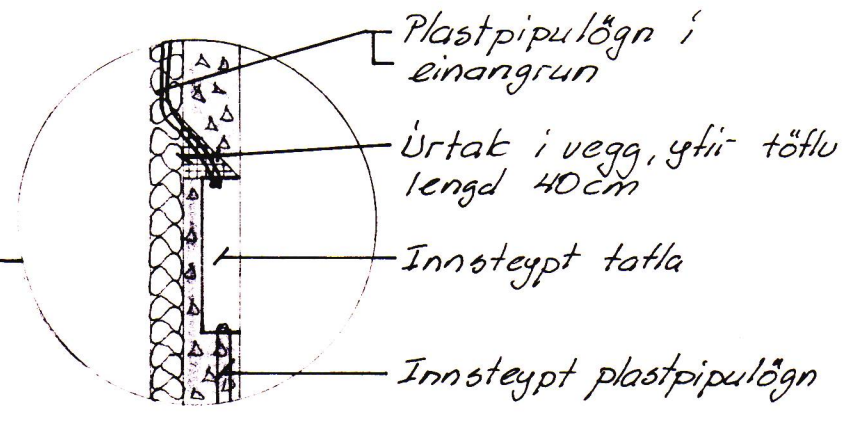 Plastpípulögn í
einangrun
Úrtak í vegg, yfir töflu
lengd 40cm
Innsteypt tafla
Innsteypt plastpípulögn